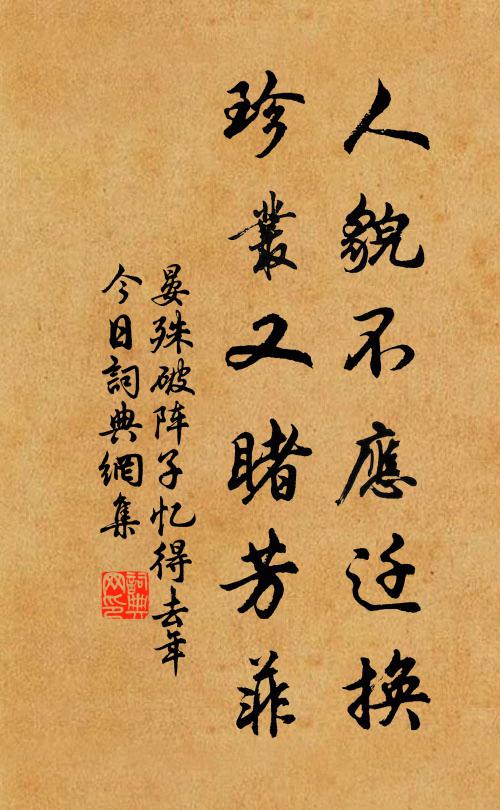 人貌不應迁換
珍叢又睹芳菲
晏殊破阵子忆得去年
今日詞典網集
詞典网印